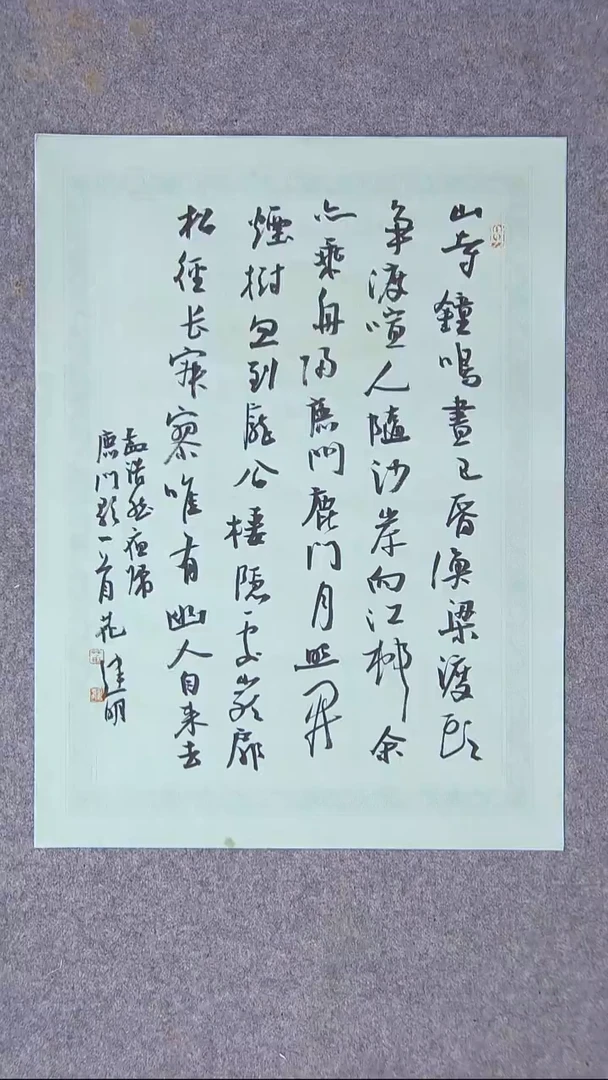 山寺鐘鳴晝已昏渔梁渡頭
争渡喧人隨沙岸向江邨余
亦乘舟歸鹿門鹿門月照開
煙樹忽到龐公棲隱處巖扉
松徑长寂寥唯有幽人自来去
孟浩然夜歸
鹿門歌一首
建明